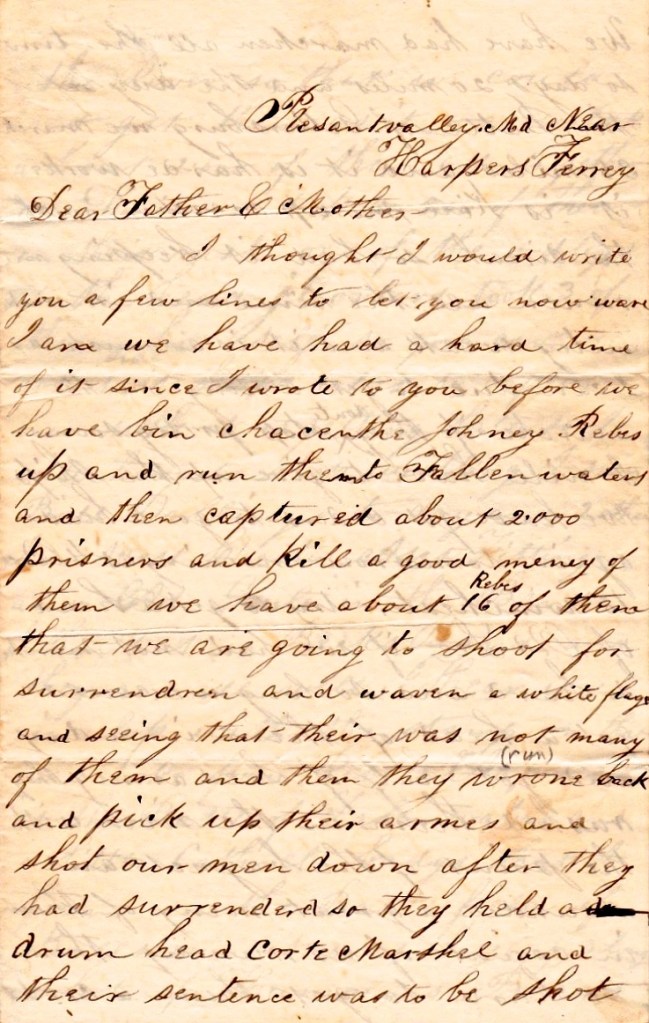 Plesantvalley. Md Near
Harpers Ferrey
Dear Father & Mother
I thought I would write
you a few lines to let you now ware
I am we have had a hard time
of it since I wrote to you before we
have bin chacen the Johney Rebs
up and run them to Fallen waters
and then captured about 2.000
prisners and Kill a good meney of
Rebs
them we have about 16 of them
that we are going to shoot for
surrendren and waven a white flag
and seeing that their was not many
(run)
of them and them they wrone back
and pick up their armes and
shot our men down after they
had surrenderd so they held a
drum head Corte Marshel and
their sentence was to be shot